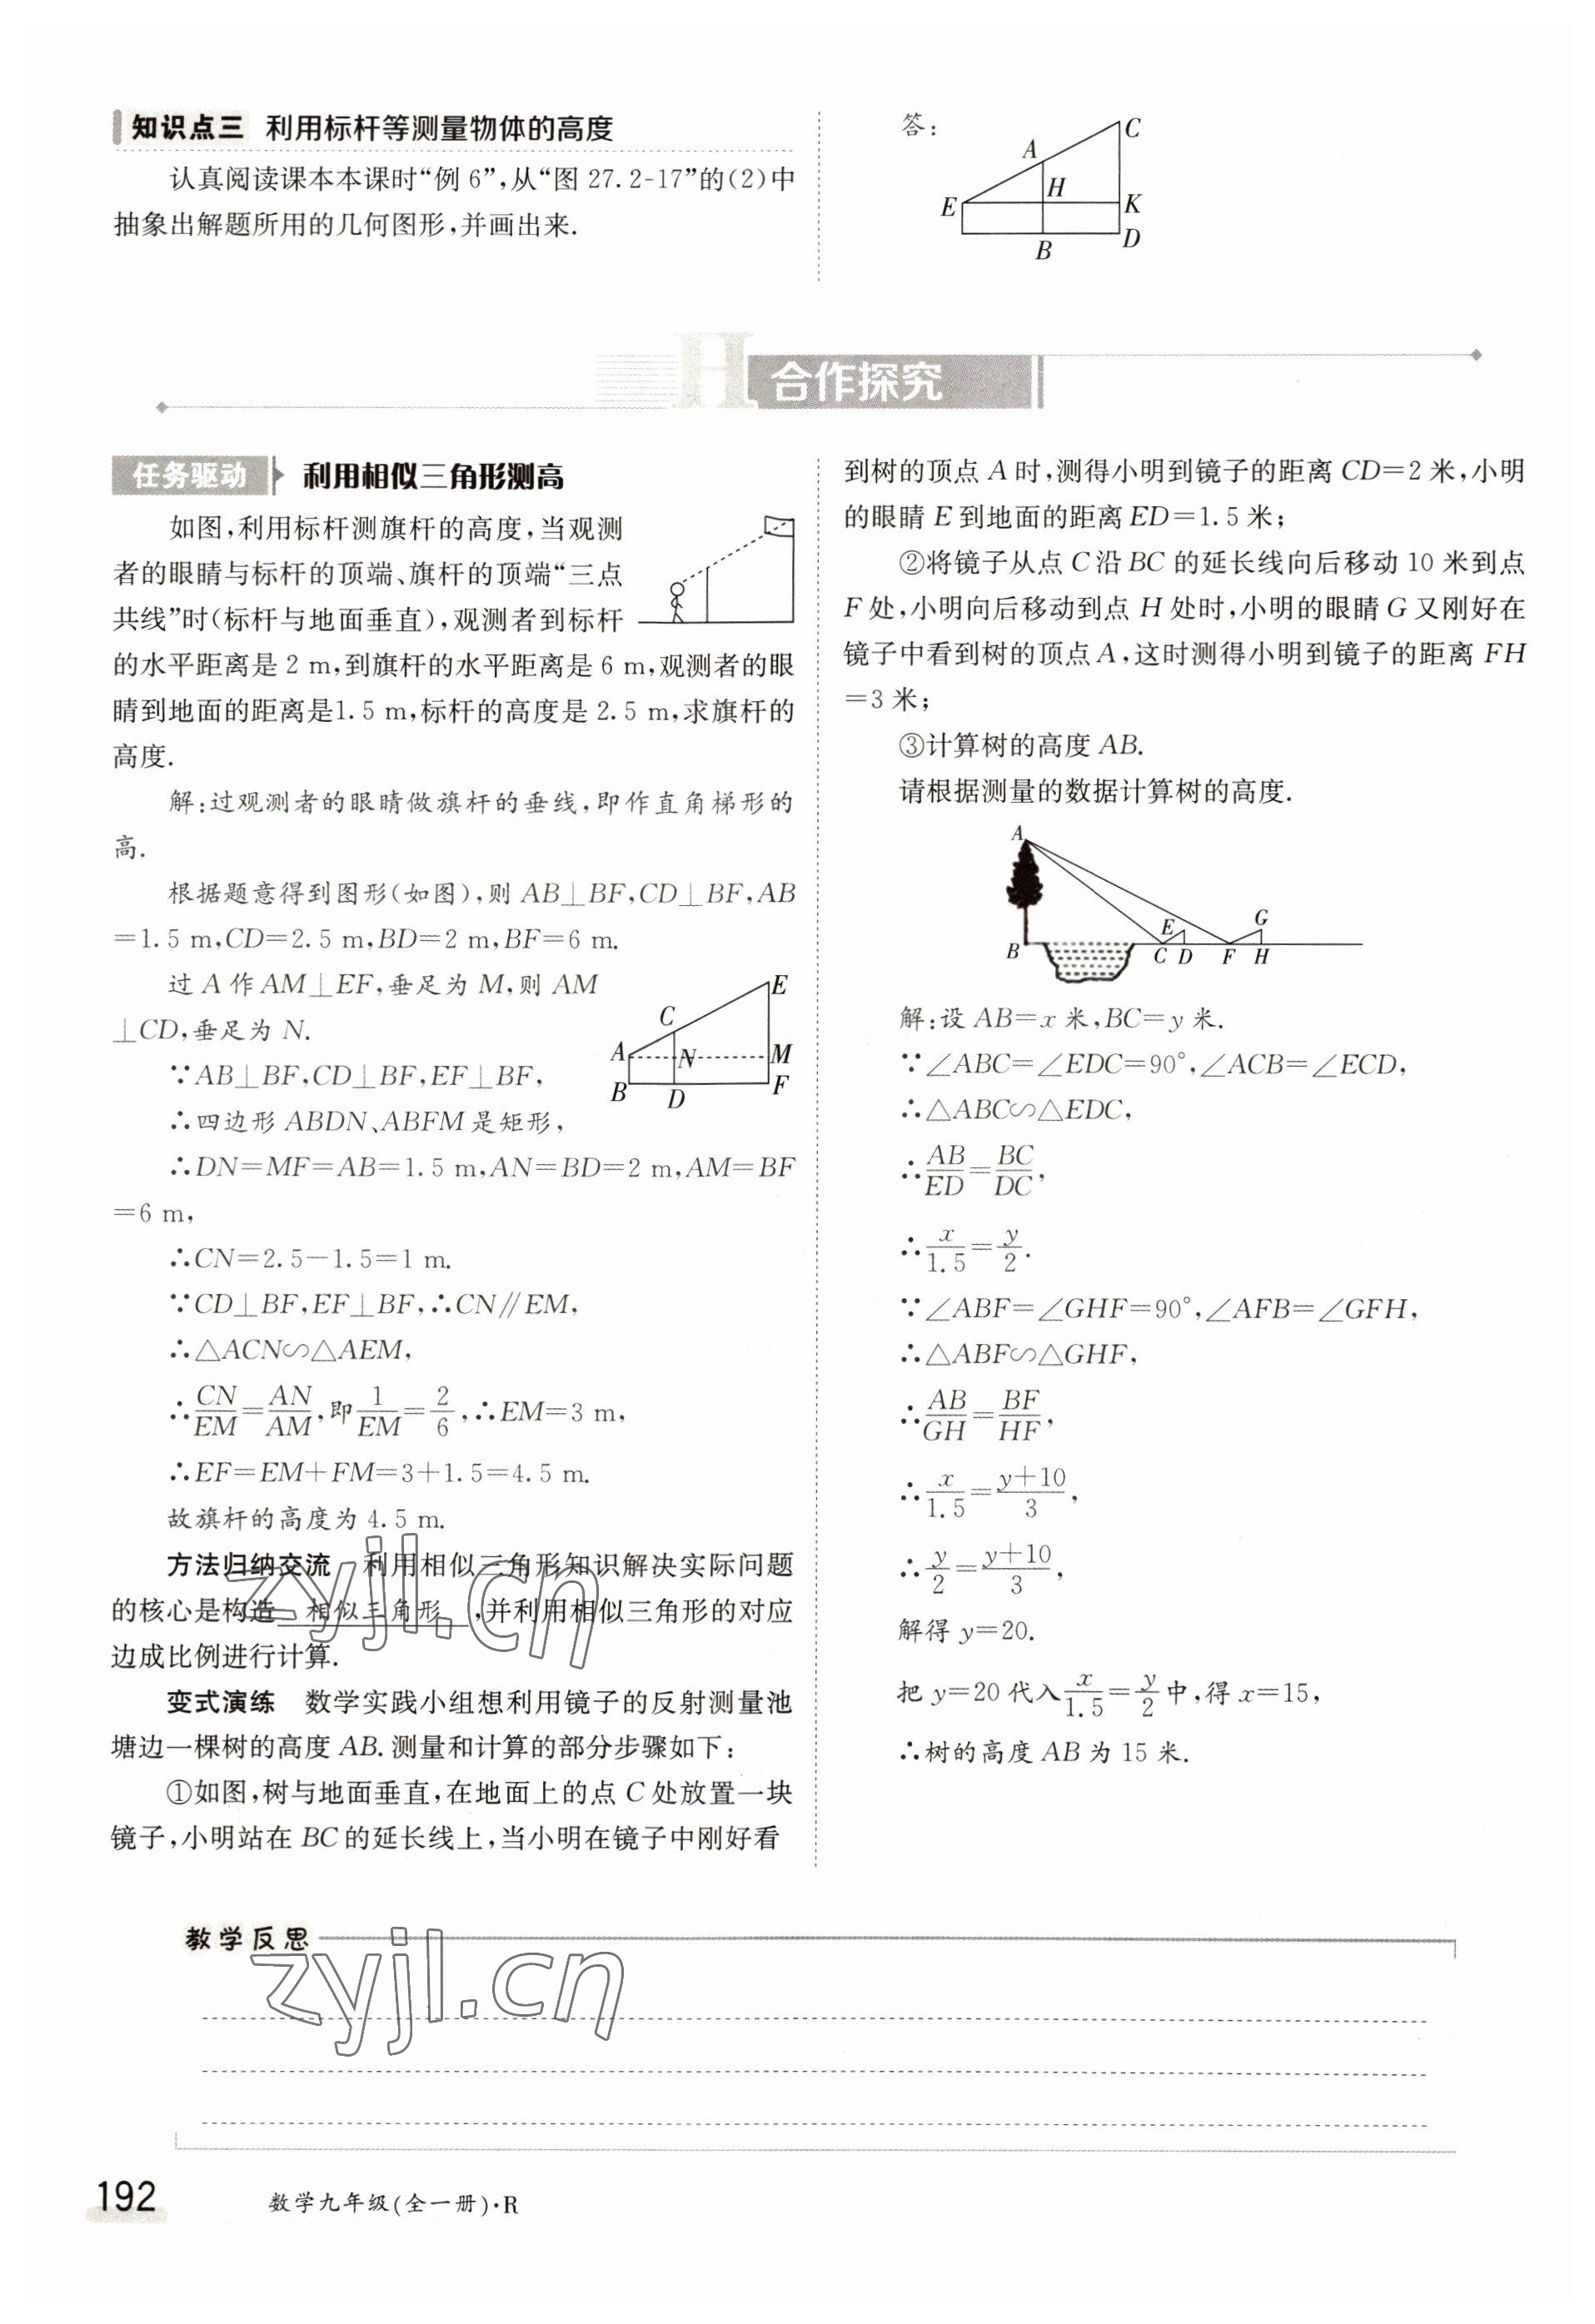 知识点三 利用标杆等测量物体的高度
认真阅读课本本课时“例 6”,从“图 27.2-17”的(2)中
抽象出解题所用的几何图形,并画出来.
答:
C
A
H
E
K
B
D
H
合作探究
任务驱动 利用相似三角形测高
如图,利用标杆测旗杆的高度,当观测
者的眼睛与标杆的顶端、旗杆的顶端“三点
共线”时(标杆与地面垂直),观测者到标杆
的水平距离是 2 m,到旗杆的水平距离是 6 m,观测者的眼
睛到地面的距离是1.5 m,标杆的高度是 2.5 m,求旗杆的
高度.
解:过观测者的眼睛做旗杆的垂线,即作直角梯形的
高.
根据题意得到图形(如图),则 AB⊥BF,CD⊥BF,AB
=1.5 m,CD=2.5 m,BD=2 m,BF=6 m.
过 A 作 AM⊥EF,垂足为 M,则 AM
⊥CD,垂足为 N.
∵AB⊥BF,CD⊥BF,EF⊥BF,
∴四边形 ABDN、ABFM 是矩形,
E
C
A
N
M
B
D
F
∴DN=MF=AB=1.5 m,AN=BD=2 m,AM=BF
=6 m,
∴CN=2.5-1.5=1 m.
∵CD⊥BF,EF⊥BF,∴CN∥EM,
∴△ACN∽△AEM,
∴CN/EM=AN/AM,即1/EM=2/6,∴EM=3 m,
∴EF=EM+FM=3+1.5=4.5 m.
故旗杆的高度为 4.5 m.
方法归纳交流 利用相似三角形知识解决实际问题
的核心是构造 相似三角形 ,并利用相似三角形的对应
边成比例进行计算.
变式演练 数学实践小组想利用镜子的反射测量池
塘边一棵树的高度 AB.测量和计算的部分步骤如下:
①如图,树与地面垂直,在地面上的点 C 处放置一块
镜子,小明站在 BC 的延长线上,当小明在镜子中刚好看
到树的顶点 A 时,测得小明到镜子的距离 CD=2 米,小明
的眼睛 E 到地面的距离 ED=1.5 米;
②将镜子从点 C 沿 BC 的延长线向后移动 10 米到点
F 处,小明向后移动到点 H 处时,小明的眼睛 G 又刚好在
镜子中看到树的顶点 A,这时测得小明到镜子的距离 FH
=3 米;
③计算树的高度 AB.
请根据测量的数据计算树的高度.
A
E
G
B
C D F H
解:设 AB=x 米,BC=y 米.
∵∠ABC=∠EDC=90°,∠ACB=∠ECD,
∴△ABC∽△EDC,
∴AB/ED=BC/DC,
∴x/1.5=y/2.
∵∠ABF=∠GHF=90°,∠AFB=∠GFH,
∴△ABF∽△GHF,
∴AB/GH=BF/HF,
∴x/1.5=y+10/3,
∴y/2=y+10/3,
解得 y=20.
把 y=20 代入x/1.5=y/2中,得 x=15,
∴树的高度 AB 为 15 米.
zyjl.cn
教学反思
zyjl.cn
192
数学九年级(全一册)·R